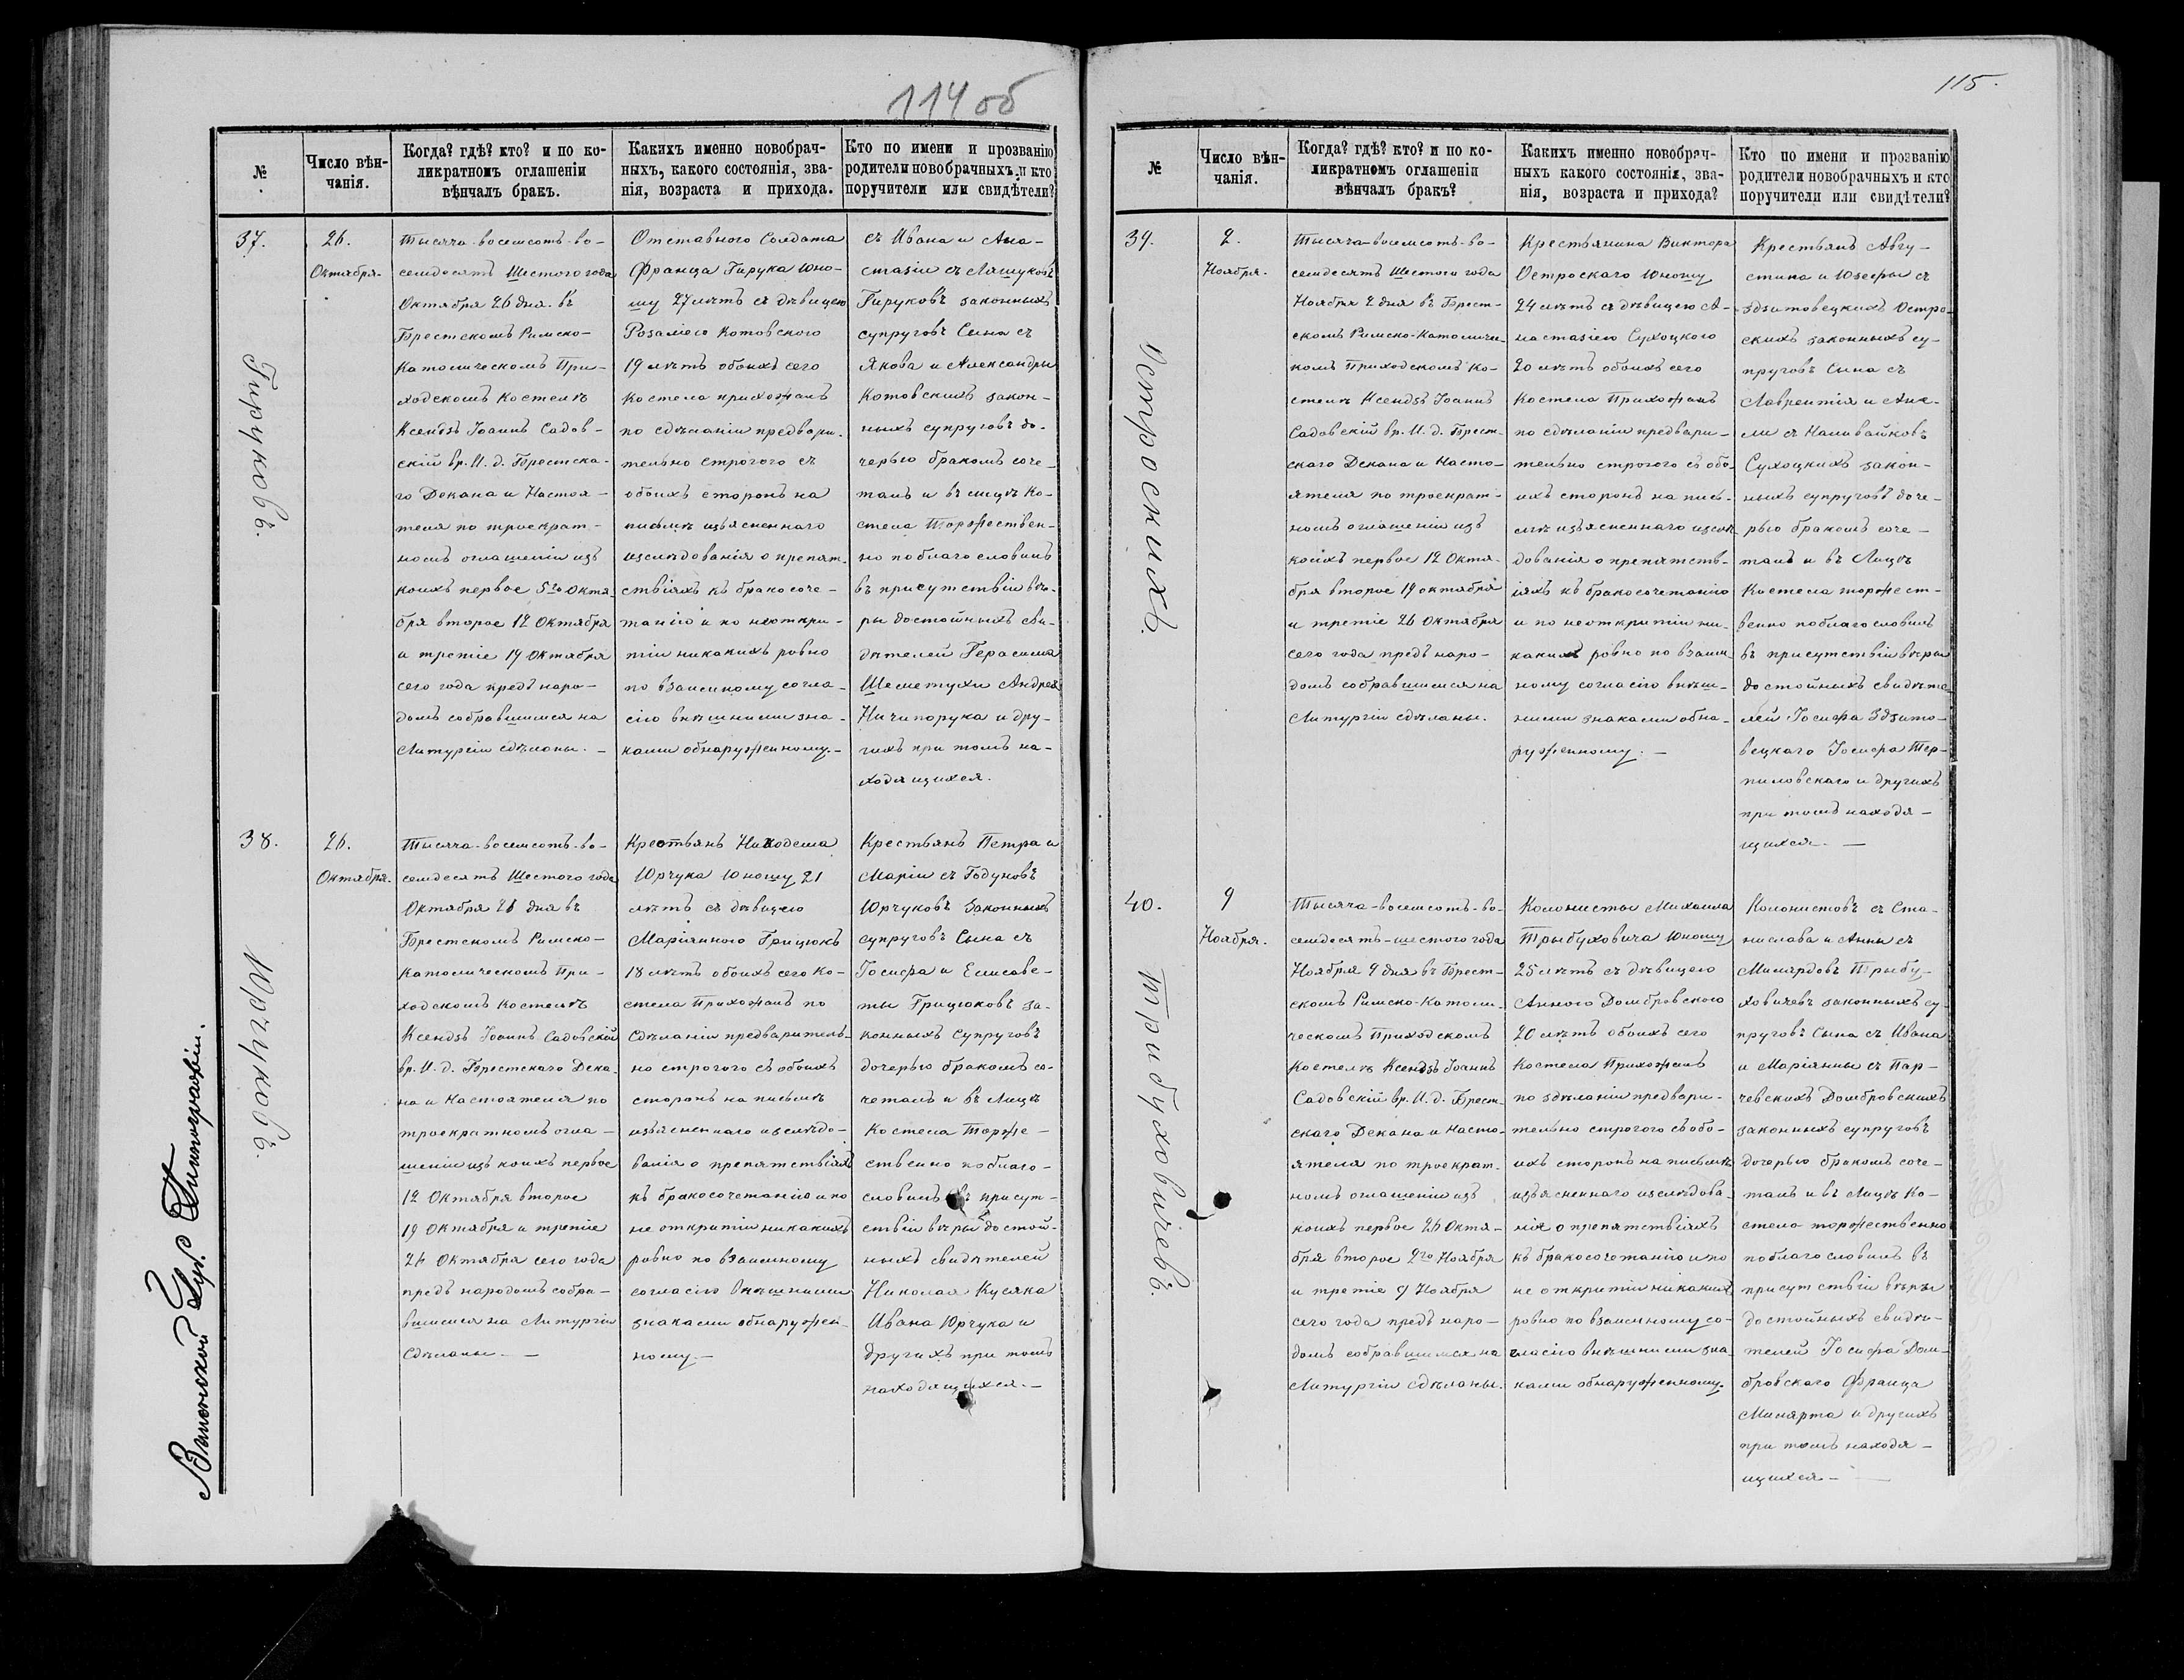 114 об
115.
№
Число вѣн-
чанія.
Когда? гдѣ? кто? и по ко-
ликратномъ оглашеніи
вѣнчалъ бракъ.
Какихъ именно новобрач-
ныхъ, какого состоянія, зва-
нія, возраста и прихода.
Кто по имени и прозванію
родители новобрачныхъ и кто
поручители или свидѣтели?
37.
Гируковъ.
26.
Октября.
Тысяча-восемсотъ-во-
семдесятъ Шестого года
Октября 26 дня. въ
Брестскомъ Римско-
Католическомъ При-
ходскомъ Костелѣ
Ксендзъ Іоаннъ Садов-
скій вр. И. д. Брестска-
го Декана и Настоя-
теля по троекрат-
номъ оглашеніи изъ
коихъ первое 5го Октя-
бря второе 12 Октября
и третіе 19 Октября
сего года предъ наро-
домъ собравшимся на
Литургіи сдѣланы. -
Отставного Солдата
Франца Гирука юно-
шу 27 лѣтъ съ дѣвицею
Розаліею Котовскою
19 лѣтъ обоихъ сего
Костела прихожанъ
по сдѣланіи предвари-
тельно строгого съ
обоихъ сторонъ на
письмѣ изъясненнаго
изслѣдованія о препят-
ствіяхъ къ бракосоче-
танію и по неоткри-
тіи никакихъ ровно
по взаимному согла-
сію внѣшними зна-
ками обнаруженному. -
съ Ивана и Ана-
стазіи съ Ляшуковъ
Гируковъ законныхъ
супруговъ Сына съ
Якова и Александры
Котовскихъ закон-
ныхъ супруговъ до-
черью бракомъ соче-
талъ и въ лицѣ Ко-
стела Торжествен-
но поблагословилъ
въ присутствіи вѣ-
ры достойныхъ Сви-
дѣтелей Герасима
Шеметухи Андрея
Ничипорука и дру-
гихъ при томъ на-
ходящихся.
38.
Юрчуковъ.
26.
Октября.
Тысяча-восемсотъ-во-
семдесятъ Шестого года
Октября 26 дня въ
Брестскомъ Римско-
Католическомъ При-
ходскомъ Костелѣ
Ксендзъ Іоаннъ Садовскій
вр. И. д. Брестскаго Дека-
на и Настоятеля по
троекратномъ огла-
шеніи изъ коихъ первое
12 Октября второе
19 Октября и третіе
26 Октября сего года
предъ народомъ собра-
вшимся на Литургіи
Сдѣланы. -
Крестьянъ Никодема
Юрчука Юношу 21
лѣтъ съ дѣвицею
Маріянною Грицюкъ
18 лѣтъ обоихъ сего Ко-
стела Прихожанъ по
Сдѣланіи предваритель-
но строгого съ обоихъ
сторонъ на письмѣ
изъясненнаго изслѣдо-
ванія о препятствіяхъ
къ бракосочетанію и по
не открытіи никакихъ
ровно по взаимному
согласію внѣшними
знаками обнаружен-
ному. -
Крестьянъ Петра и
Маріи съ Годуновъ
Юрчуковъ Законныхъ
супруговъ Сына съ
Іосифа и Елисаве-
ты Грицюковъ за-
конныхъ Супруговъ
дочерью бракомъ со-
четалъ и въ Лицѣ
Костела Торже-
ственно поблаго-
словилъ въ присут-
ствіи вѣры достой-
ныхъ свидѣтелей
Николая Кусяка
Ивана Юрчука и
другихъ при томъ
находящихся. -
Виленской Губ. Типографіи.
№
Число вѣн-
чанія.
Когда? гдѣ? кто? и по ко-
ликратномъ оглашеніи
вѣнчалъ бракъ?
Какихъ именно новобрач-
ныхъ какого состоянія, зва-
нія, возраста и прихода?
Кто по имени и прозванію
родители новобрачныхъ и кто
поручители или свидѣтели?
39.
Остроскихъ.
2.
Ноября.
Тысяча-восемсотъ-во-
семдесятъ Шестого года
Ноября 2 дня въ Брест-
скомъ Римско-Католиче-
комъ Приходскомъ Ко-
стелѣ Ксендзъ Іоаннъ
Садовскій вр. И. д. Брест-
скаго Декана и Насто-
ятеля по троекрат-
номъ оглашеніи изъ
коихъ первое 12 Октя-
бря второе 19 октября
и третіе 26 Октября
сего года предъ наро-
домъ собравшимся на
Литургіи сдѣланы.
Крестьянина Виктора
Остроскаго Юношу
24 лѣтъ съ дѣвицею А-
настазіею Сухоцкою
20 лѣтъ обоихъ сего
Костела Прихожанъ
по сдѣланіи предвари-
тельно строгого съ обо-
ихъ сторонъ на пись-
мѣ изъясненнаго изслѣ-
дованія о препятств-
іяхъ къ бракосочетанію
и по неоткритіи ни-
какихъ ровно по взаим-
ному согласію внѣш-
ними знаками обна-
руженному. -
Крестьянъ Авгу-
стина и Юзефы съ
Здзитовецкихъ Остро-
скихъ законныхъ су-
пруговъ Сына съ
Лаврентія и Ане-
ли съ Наливайковъ
Сухоцкихъ закон-
ныхъ супруговъ доче-
рью бракомъ соче-
талъ и въ Лицѣ
Костела торжест-
венно поблагословилъ
въ присутствіи вѣры
достойныхъ свидѣте-
лей Іосифа Здзито-
вецкаго Іосифа Тер-
пиловскаго и другихъ
при томъ находя-
щихся. -
40.
Трибуховичевъ.
9
Ноября.
Тысяча-восемсотъ-во-
семдесятъ-шестого года
Ноября 9 дня въ Брест-
скомъ Римско-Католи-
ческомъ Приходскомъ
Костелѣ Ксендзъ Іоаннъ
Садовскій вр. И. д. Брест-
скаго Декана и Насто-
ятеля по троекрат-
номъ оглашеніи изъ
коихъ первое 26 Октя-
бря второе 2го Ноября
и третіе 9 Ноября
сего года предъ наро-
домъ собравшимся на
Литургіи сдѣланы.
Колонисты Михаила
Трыбуховича Юношу
25 лѣтъ съ дѣвицею
Анною Домбровскою
20 лѣтъ обоихъ сего
Костела Прихожанъ
по здѣланіи предвари-
тельно строгого съ обо-
ихъ сторонъ на письмѣ
изъясненнаго изслѣдова-
нія о препятствіяхъ
къ бракосочетанію и по
не открытіи никакихъ
ровно по взаимному со-
гласію внѣшними зна-
ками обнаруженному.
Колонистовъ съ Ста-
нислава и Анны съ
Милярдовъ Трыбу-
ховичевъ законныхъ су-
пруговъ Сына съ Ивана
и Маріянны съ Пар-
чевскихъ Домбровскихъ
законныхъ супруговъ
дочерью бракомъ соче-
талъ и въ Лицѣ Ко-
стела торжественно
поблагословилъ въ
присутствіи вѣры
достойныхъ свидѣ-
телей Іосифа Дом-
бровскаго Франца
Милярта и другихъ
при томъ находя-
щихся -